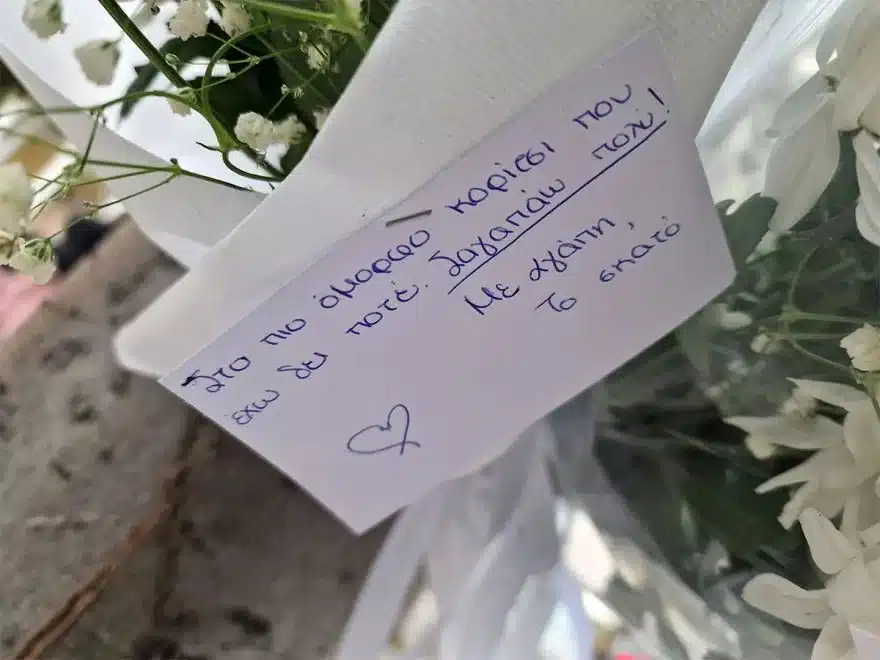 Στο πιο όμορφο κορίτσι που
έχω δει ποτέ. Σαγαπάω πολύ!
Με αγάπη,
το σκατό